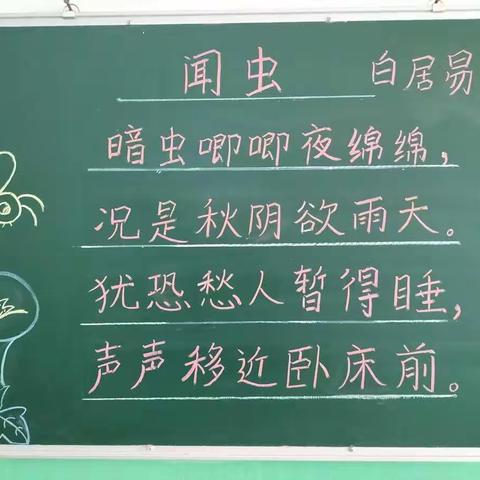 闻虫 白居易
暗虫唧唧夜绵绵，
况是秋阴欲雨天。
犹恐愁人暂得睡，
声声移近卧床前。